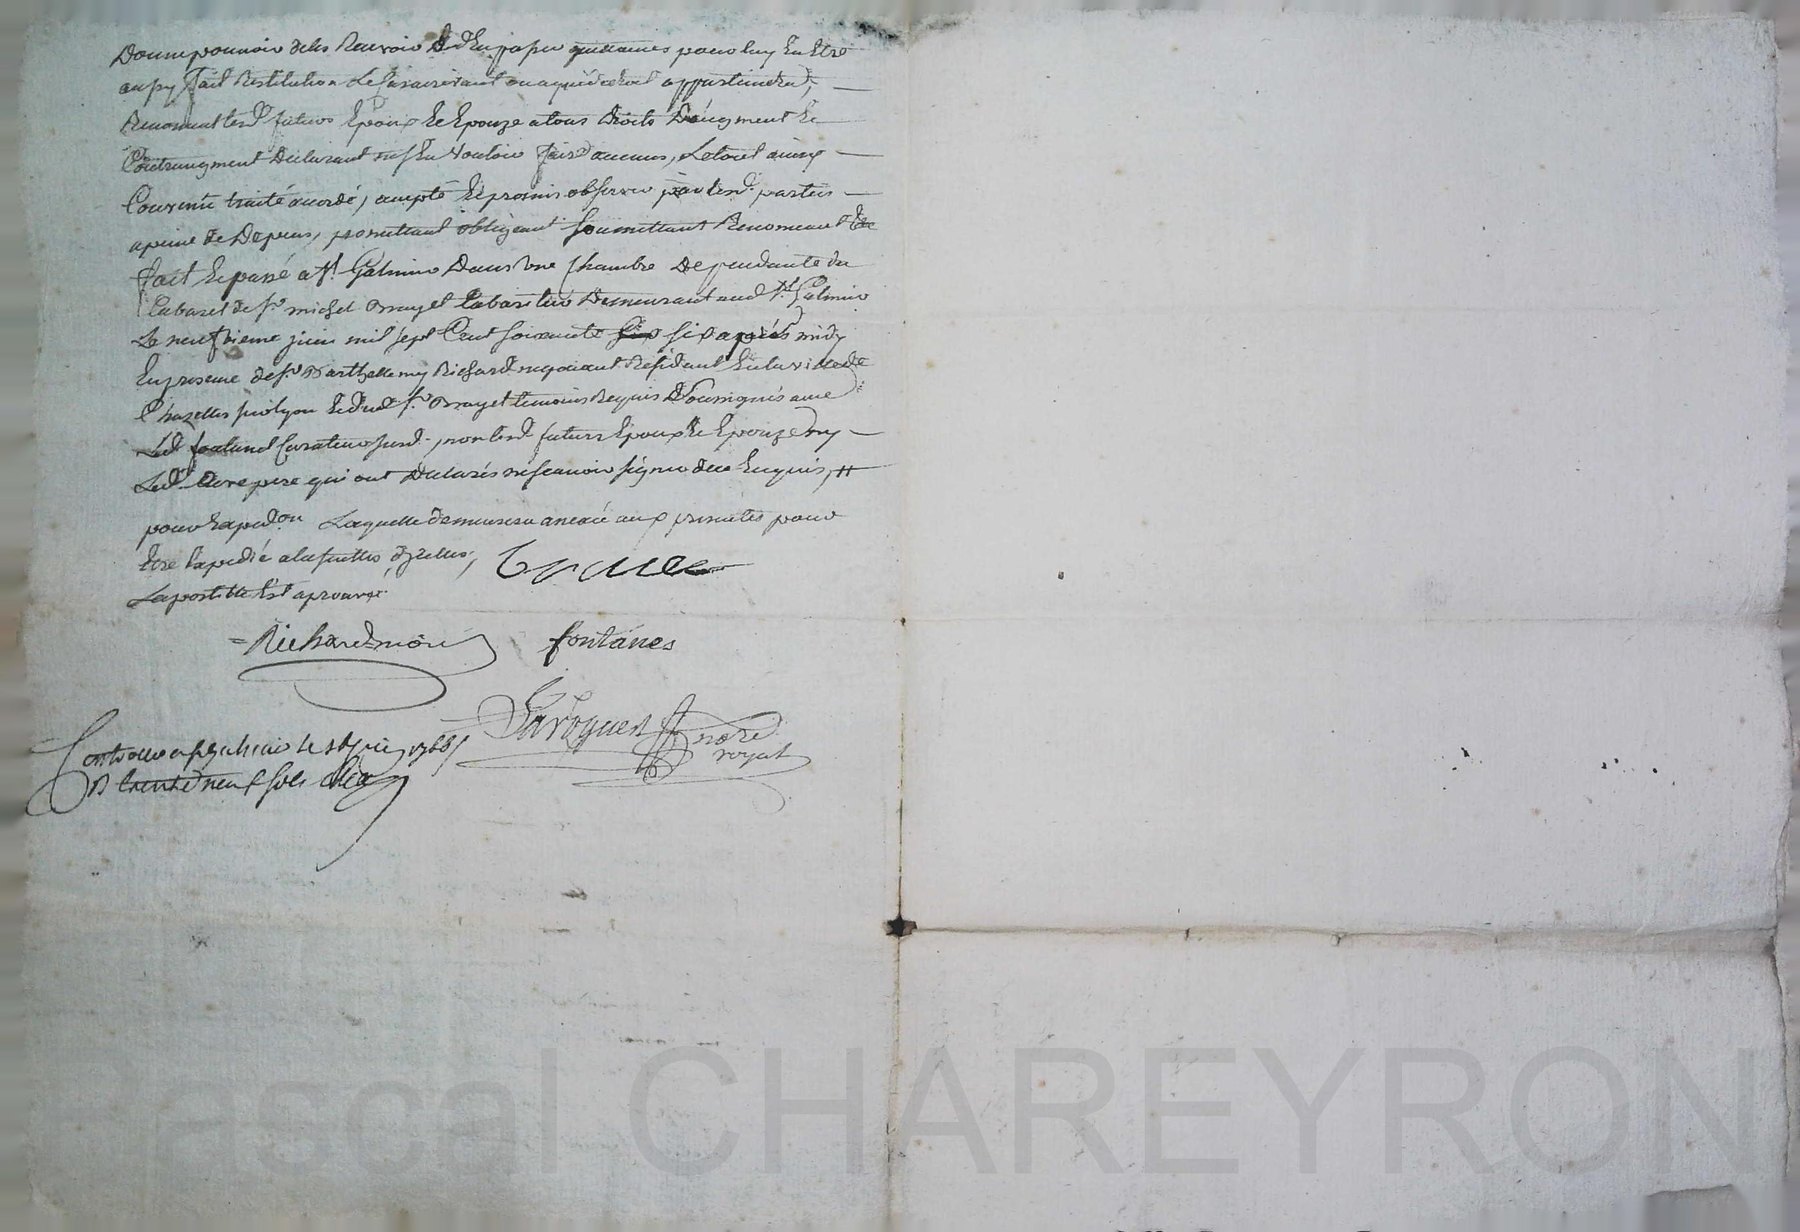 Donne pouvoir de les Recevoir Et d'En passer quittances pour luy En Etre
aussy fait Restitution Le cas arrivant ou a qui de droit appartiendra,
Renonceant lesd. futurs Epoux Et Epouze a tous Droits D'augment Et
Contraugment Declarant n'En Vouloir faire aucuns, Le tout ainsy
Convenu traité accordé, accepté Et promis observer par lesd. parties
a peine de Depens, promettant obligeant Soumettant Renonceant Etc
fait Et passé a St. Galmier Dans Une Chambre Dependante du
Cabaret de sr. michel Cabaretier Demeurant aud. St. Galmier
Le neufvieme juin mil sept Cent soixante six après midy
En presence de sr. Barthellemy Richard negociant Residant En la ville de
Chazelles sur lyon Et dud. sr. temoins Requis Soussignés avec
Led. Curateur susd. non lesd. futurs Epoux Et Epouze ny
Led. pere qui ont Declarés ne scavoir signer de ce Enquis,
pour Expedon Laquelle demeurera annexée aux presentes pour
Etre Expedié a la suitte d'ycelles,
La postille Est aprouvée
Richard
fontanes
Larogues
nore
royal
Controllé a St galmier le juin 1766
R trente neuf sols
Pascal CHAREYRON